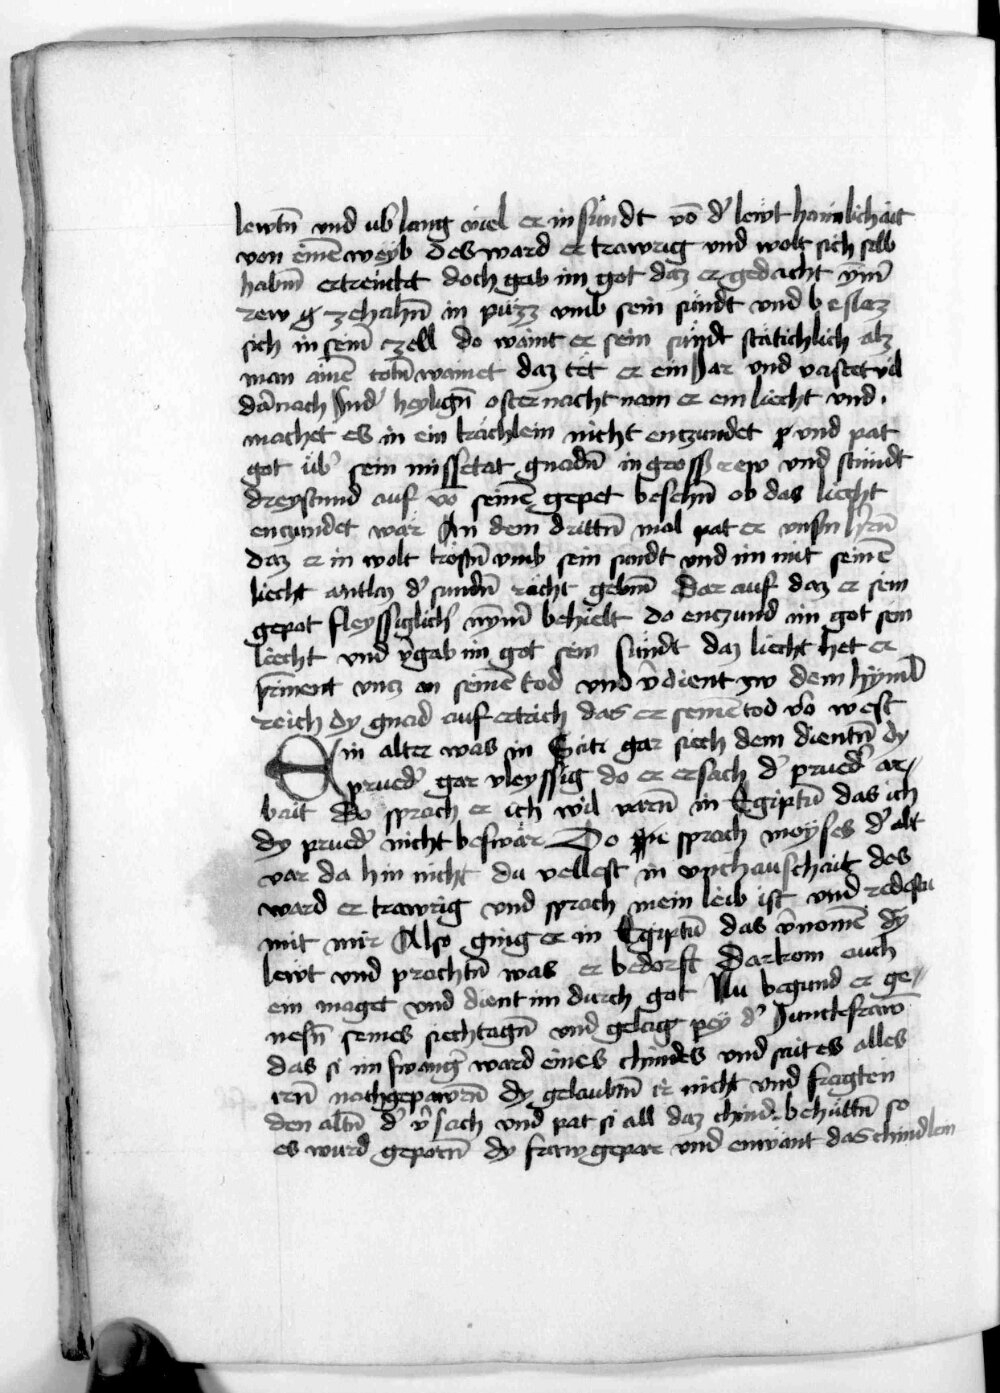 lewtñ vnd vb̕ lang viel er in sündt võ d̕ lewt haimlichait
von einẽ weyb des ward er trawrig vnd wolt sich selb
habm̄ ertrenckt doch gab im got daz er gedacht ym̄
rew zehabñ in püzz vmb sein sündt vnd besloz
sich in sein̄ czell do waint er sein sündt stätichlich alz
man ainẽ totñ wainet daz tet er ein Jar vnd vastet vil
darnach Jn d̕ heyligñ osternacht nam er ein liecht vnd
machet es in ein krächlein nicht enczundet vnd pat
got üb̕ sein missetat gnadñ in gross rew vnd stündt
dreystund auf võ seinẽ gepet besehñ ob das liecht
enczundet wär An dem drittñ mal pat er vnsm̄ hrñ
daz er in wolt tröstñ vmb sein sundt vnd im mit seinẽ
liecht antlaz d̕ sundñ rächt gebm̄ Dar auf daz er sein
gepot fleyssiglich ym̄ behielt do enczund im got sein
liecht vnd v̕gab im got sein sündt daz liecht het er
prīnent vncz an seinẽ tod vnd v̕dient zw dem hyml
reich dy gnad auf ertrich das er seinẽ tod vor west
Ein alter was in Sciti gar siech dem dientñ dy
prued̕ gar vleyssig do er ersach d̕ prued̕ ar//
bait Do sprach er ich wil varñ in Egiptū das ich
dy prued̕ nicht beswär Do sprach moyses d̕ alt
var da hin nicht du vellest in vnchauschait des
ward er trawrig vnd sprach mein leib ist vnd redestu
mit mir Also ging er in Egiptū das v̕nomẽ dy
lewt vnd prachtñ was er bedorft Dar kom auch
ein maget vnd dient im durch got Nu begund er ge//
nesñ seines siechtagñ vnd gelag pey d̕ Junckfraw
das si im swang̕ ward eines chindes vnd sait es alles
irñ nachgepawrñ dy gelaubtñ ir nicht vnd fragten
den altñ d̕ v̕sach vnd pat si all daz chind behüttñ so
es wurd geporñ dy fraw gepar vnd entwant das chindlein